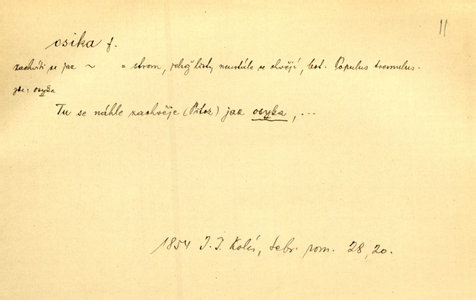 11
osika f.
zachvěti se jak ~ = strom, jehož listy neustále se chvějí, bot. Populus tremulus.
jak osyka
Tu se náhle zachvěje (Viktor) jak osyka, ...
1854 J. J. Kolár, Sebr. rom. 28, 20.